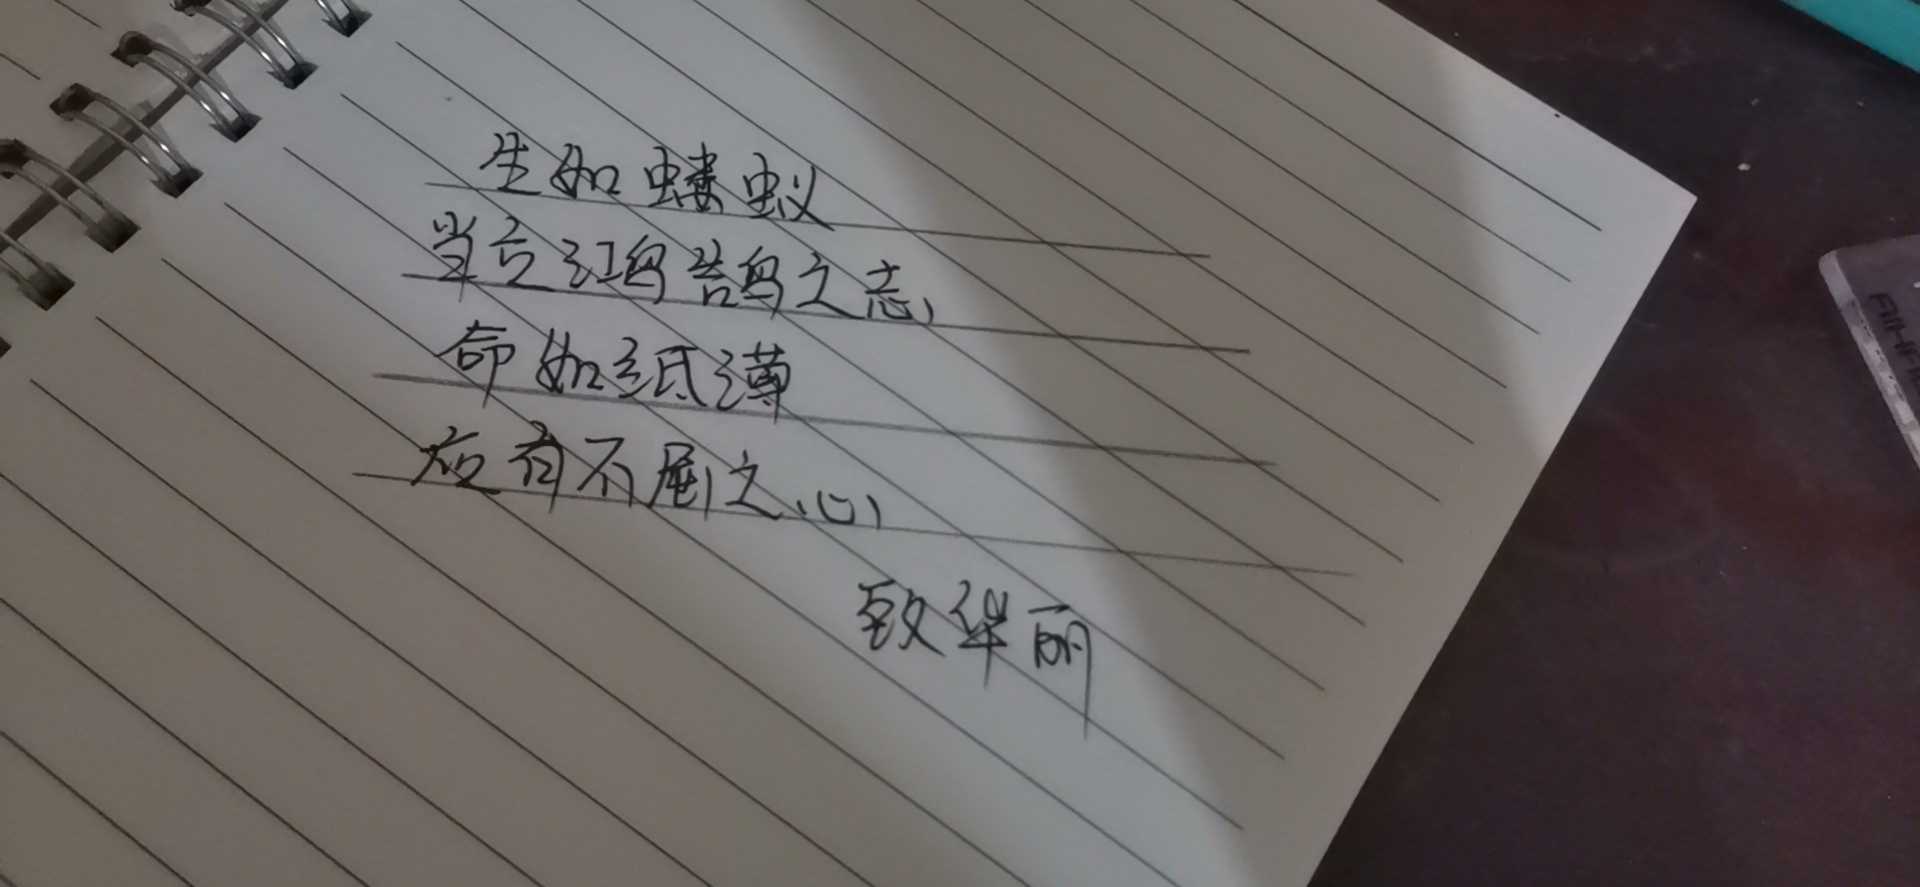 生如蝼蚁
当立鸿鹄之志,
命如纸薄
应有不屈之心,
致华丽